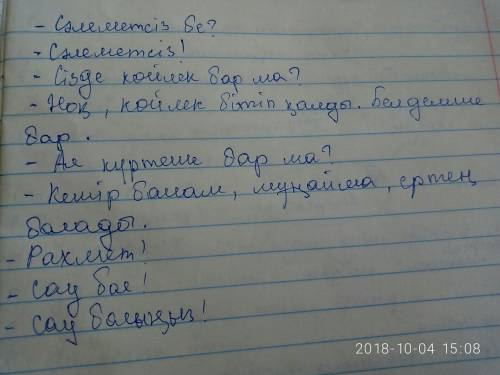 - Сәлеметсіз бе?
- Сәлеметсіз!
- Сізде көйлек бар ма?
- Жоқ, көйлек бітіп қалды. Белдемше
бар.
- Ал күртеше бар ма?
- Кешір балам, мұңайма, ертең
болады.
- Рахмет!
- Сау бол!
- Сау болыңыз!
2018-10-04 15:08